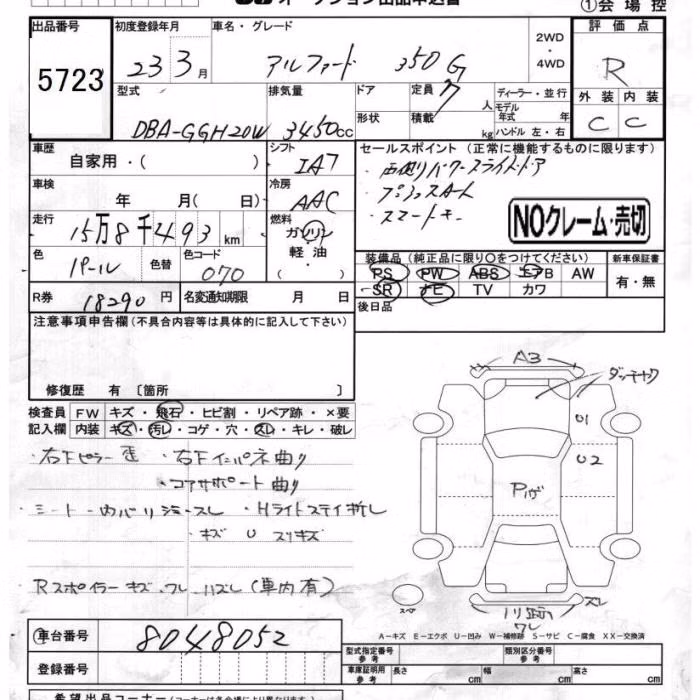 オークション出品申込書
①会場控
出品番号 初度登録年月 車名・グレード 2WD・4WD 評価点
5723 23 3月 アルファード 350G R
型式 排気量 ドア 定員 7人 ディーラー・並行 外装 内装
モデル年式 年
DBA-GGH20W 3450cc 形状 積載 kg ハンドル 左・右 C C
車歴 シフト セールスポイント(正常に機能するものに限ります)
自家用・( ) IA7 ・両側パワースライドドア
車検 冷房 ・プッシュスタート
年 月( 日) AAC ・スマートキー
NOクレーム・売切
走行 燃料
15万8千493km ガソリン・軽油・( )
色 パール 色替 色コード 070 装備品(純正品に限り○をつけてください) 新車保証書
PS PW ABS エアB AW 有・無
SR ナビ TV カワ
R券 18290円 名変通知期限 月 日 後日品
注意事項申告欄(不具合内容等は具体的に記入して下さい)
修復歴 有〔箇所 〕
検査員 FW キズ・飛石・ヒビ割・リペア跡・×要
記入欄 内装 キズ・汚レ・コゲ・穴・スレ・キレ・破レ
・右Fピラー歪 ・右Fインパネ曲り
・コアサポート曲り
・シート・内バリ
・Hライトステイ折レ
・キズ U スリキズ
Rスポイラーキズ・ワレ・ハズレ(車内有)
A3
U1
U2
Pいが
スペア
ズレ
ワレ
A−キズ E−エクボ U−凹み W−補修跡 S−サビ C−腐食 XX−交換済
車台番号 8048052
登録番号
型式指定番号 参考 類別区分番号 参考
車庫証明用 参考 長さ cm 幅 cm 高さ cm
希望出品コーナー